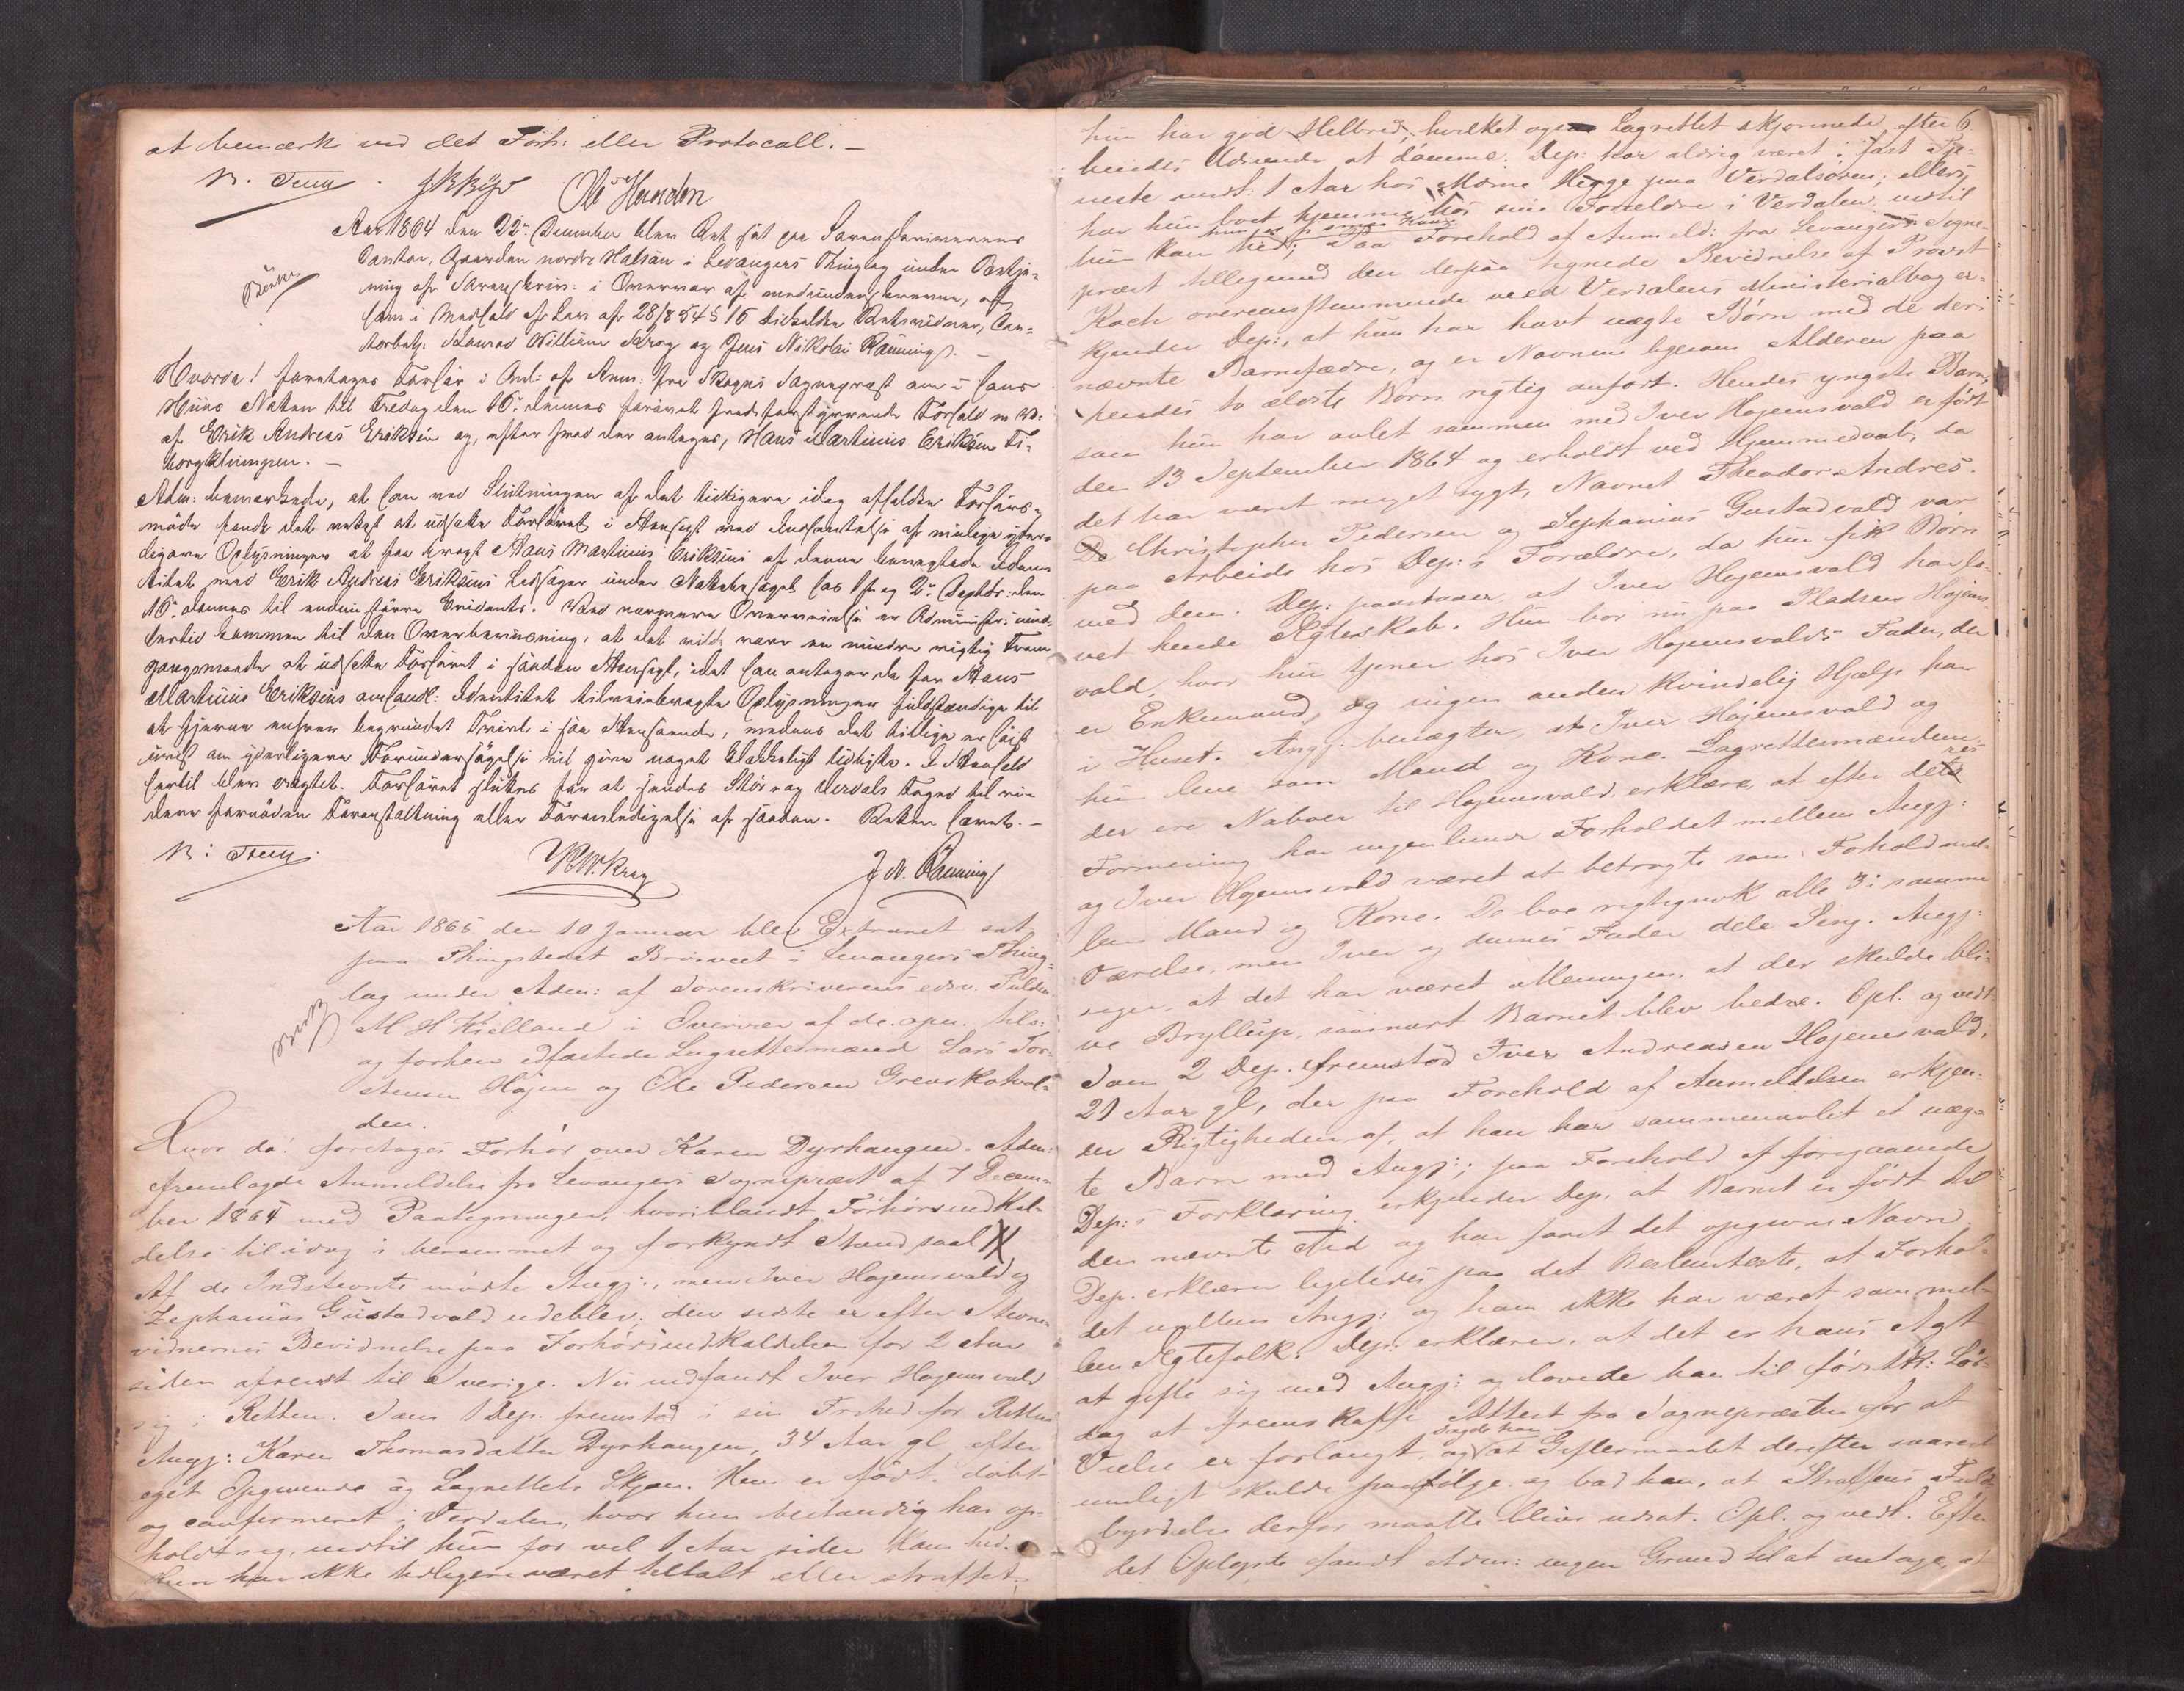 at bemærk ved det Forh: eller Protocall. —
N. Jenn . Ole Haudon
Aar 1864 den 22de December blev Ret sat paa Sorenskriverens
Contor, Gaarden nordre Halsan i Levangers Thinglag under Bestje-
ning af Sorenskriv: i Overvær af medunderskrevne, af
ham i Medhold af Lov af 28/8 54 § 16 tilkaldte Retsvidner, Con-
torbetj. Konrad William Krag og Jens Nikolai Rønning. —
Hvorda! foretoges Forhør i Anl: af Anm: fra Skogns Sognepræst om i hans
Huus Natten til Fredag den 16de dennes forøvet
af Erik Andreas Eriksen og, efter hvad der antages, Hans Martinus Eriksen Ti-
borgklumpen. —
Adm: bemærkede, at han ved Slutningen af det tidligere idag afholdte Forhørs-
møde fandt det rettest at udsætte Forhøret i Hensigt ved Indhentelse af mulige yder-
ligere Oplysninger at faa bragt Hans Martinus Eriksens af denne benægtede Iden-
titet med Erik Andreas Eriksens Ledsager under Natteh
16de dennes til endnu større Evidents. Ved nærmere Overveielse er Administr: imid-
lertid kommen til den Overbeviisning, at det vilde være en mindre rigtig Frem
gangsmaade at udsætte Forhøret i saadan Hensigt, idet han antager de for Hans
Martinus Eriksens omhandl: Identitet tilveiebragte Oplysninger fuldstændige til
at fjerne enhver begrundet Tvivl i saa Henseende, medens det tillige er høist
uvist om yderligere Forundersøgelse vil gjøre noget Klækkeligt tidligste. I Henhold
hertil blev eragtet. Forhøret sluttes for at sendes Stør og Verdals Foged til vi-
dere fornøden Foranstaltning eller Foranledigelse af saadan. Retten hævet. —
N: Jenn K W. Krag J N. Rønning
Aar 1865 den 10 Januar blev Extraret sat
paa Thingstedet Brusveet i Levangers Thing-
lag under Adm: af Sorenskriverens edsv. Fuldm.
M H Kielland i Overvær af de. opn. tils:
og forhen edfæstede Lagrettesmænd Lars Tor-
stensen Højen og Ole Pedersen Grenskotvol-
den.
Hvor da! foretoges Forhør over Karen Dyrhaugen. Adm:
fremlagde Anmeldelse fra Levangers Sognepræst af 7 Decem-
ber 1864 med Paategninger, hvoriblandt Forhørsindkal-
delse til idag i berammet og forkyndt Stand saal
Af de Indstevnte mødte Angj:, men Iver Hojemsvald og
Zephanias Gustadvald udeblev; den sidste er efter Stevne-
vidnernes Bevidnelse paa Forhørsindkaldelsen for 2 Aar
siden afreist til Sverige. Nu indfandt Iver Hojemsvald
sig i Retten. Som 1 Dep. fremstod i sin Frihed for Retten
Angj: Karen Thomasdatter Dyrhaugen, 34 Aar gl, efter
eget Opgivende og Lagrettets Skjøn. Hun er født, døbt
og confirmeret i Verdalen, hvor hun bestandig har op-
holdt sig, indtil hun for vel 1 Aar siden kom hid.
Hun har ikke tidligere været tiltalt eller straffet.
6
hun har god Helbred, hvilket ogsaa Lagrettet skjønnede efter
hendes Udseende at dømme. Dep: har aldrig været i fast Tje-
neste undt: 1 Aar hos Morine Hegge paa Verdalsøren; ellers
har hun boet hjemme hos sine Forældre i Verdalen, indtil
hun kom hid; Paa Forehold af Anmeld: fra Levangers Sogne-
præst tilligemed den derpaa tegnede Bevidnelse af Provst
Koch overensstemmende med Verdalens Ministerialbog er-
kjender Dep:, at hun har havt uægte Børn med de der
nævnte Barnefædre, og er Navnene ligesom Alderen paa
hendes to ældste Børn rigtig anført. Hendes yngste Barn,
som hun har avlet sammen med Iver Hojemsvald er født
den 13 September 1864 og erholdt ved Hjemmedaab, da
det har været meget sygt, Navnet Theodor Andres.
De Christopher Pedersen og Sephanias Gustadvald var
paa Arbeide hos Dep:s Forældre, da hun fik Børn
med dem. Dep: paastaar, at Iver Hojemsvald har lo-
vet hende Ægteskab. Hun bor nu paa Pladsen Hojems-
vald, hvor hun tjener hos Iver Hojemsvalds Fader, der
er Enkemand, og ingen anden kvindelig Hjælp har
i Huset. Angj: benægter, at Iver Hojemsvald og
hun leve som Mand og Kone. Lagrettesmændene
der ere Naboer til Hojemsvald, erklære, at efter deres
Formening har ingenlunde Forholdet mellem Angj:
og Iver Hojemsvald været at betragte som Forhold mel-
lem Mand og Kone. De boe rigtignok alle 3: i samme
Værelse, men Iver og dennes Fader dele Seng. Angj:
siger, at det har været Meningen, at der skulde bli-
ve Bryllup, saasnart Barnet blev bedre. Opl. og vedt.
Som 2 Dep. fremstod Iver Andreasen Hojemsvald,
21 Aar gl, der paa Forehold af Anmeldelsen erkjen-
der Rigtigheden af, at han har sammenavlet et uæg-
te Barn med Angj:; paa Forehold af foregaaende
Dep:s Forklaring erkjender Dep. at Barnet er født til
den nævnte Tid og har faaet det opgivne Navn.
Dep. erklærer ligeledes paa det Bestemteste, at Forhol-
det mellem Angj: og ham ikke har været som mel-
lem Ægtefolk. Dep: erklærer, at det er hans Agt
at gifte sig med Angj: og lovede han til førstk: Lør-
dag at fremskaffe Attest fra Sognepræsten for at
Vielse er forlangt, og sagde han at Giftermaalet derefter snarest
muligt skulde paafølge og bad han, at Straffens Fuld-
byrdelse derfor maatte blive udsat. Opl. og vedt. Efter
det Oplyste fandt Adm: ingen Grund til at antage, at